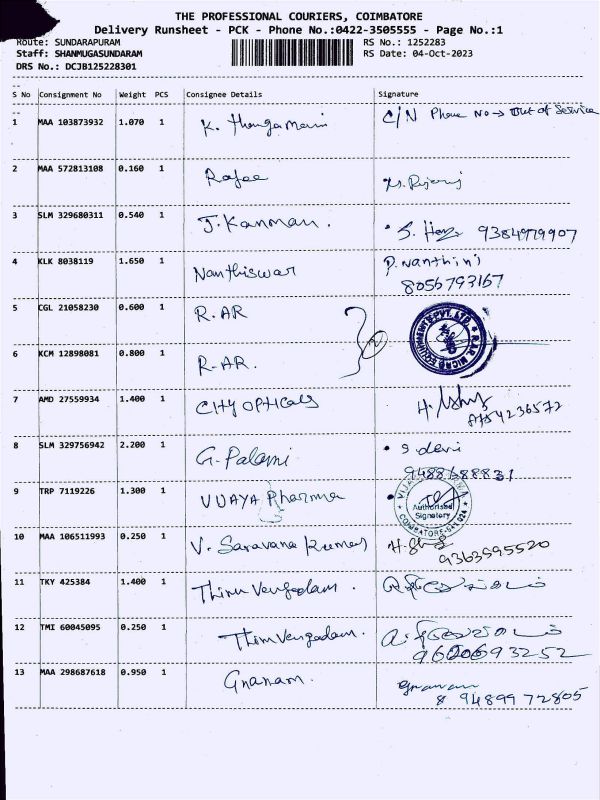 THE PROFESSIONAL COURIERS, COIMBATORE
Delivery Runsheet - PCK - Phone No.:0422-3505555 - Page No.:1
Route: SUNDARAPURAM RS No.: 1252283
Staff: SHANMUGASUNDARAM RS Date: 04-Oct-2023
DRS No.: DCJB125228301
S No Consignment No Weight PCS Consignee Details Signature
1 MAA 103873932 1.070 1 K. Thangamani C/N Phone No → Out of Service
2 MAA 572813108 0.160 1 Rafee
3 SLM 329680311 0.540 1 J. Kannan. 9384979907
4 KLK 8038119 1.650 1 Nanthiswar P. Nanthini
8056793167
5 CGL 21058230 0.600 1 R. AR
6 KCM 12898081 0.800 1 R-AR. 2
R.A.R MICRO EQUIPMENTS PVT. LTD.
7 AMD 27559934 1.400 1 CITY OPTICALS
8 SLM 329756942 2.200 1 G. Palani S devi
9488688831
9 TRP 7119226 1.300 1 VIJAYA Pharma
Authorised
Signatory
10 MAA 106511993 0.250 1 V. Saravana Kumar
9363595520
11 TKY 425384 1.400 1 Thiru Vengadam.
12 TMI 60045095 0.250 1 Thiru Vengadam.
9600693252
13 MAA 298687618 0.950 1 Gnanam. Gnanam
9489972805